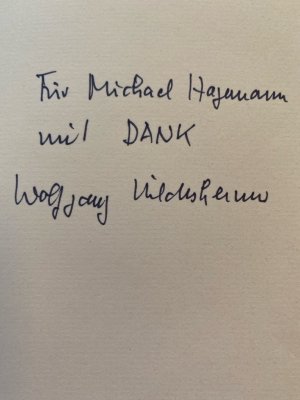 Für Michael Hagemann
mit DANK
Wolfgang Hildesheimer